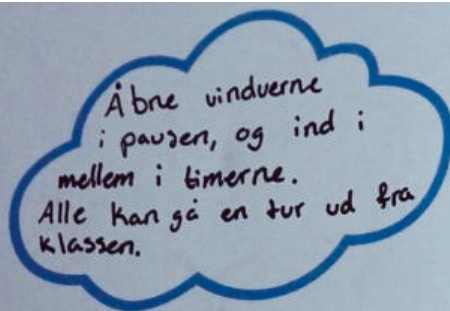 Åbne vinduerne
i pausen, og ind i
mellem i timerne.
Alle kan gå en tur ud fra
klassen.